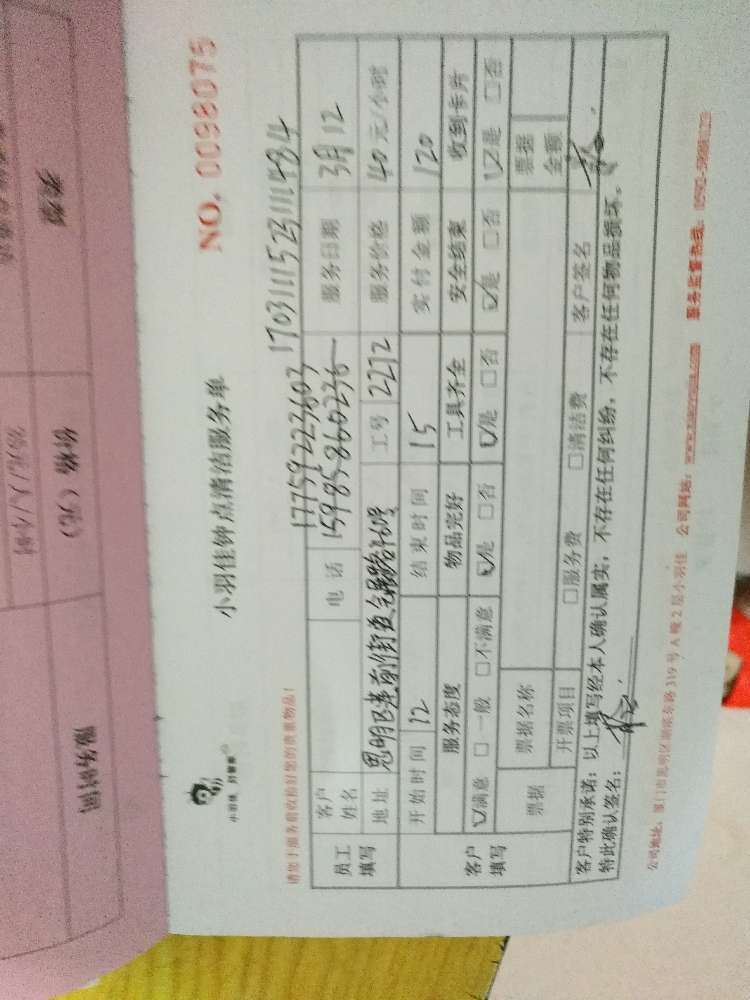 小羽佳钟点清洁服务单
NO. 0098075
小羽佳
请您于服务前收捡好您的贵重物品!
17759223603 1703111523111484
员工填写
客户姓名 电话 15985860236 服务日期 3月12
地址 思明区莲前街道 工号 2272 服务价格 40元/小时
开始时间 12 结束时间 15 实付金额 120
客户填写
服务态度 物品完好 工具齐全 安全结束 收到卡片
☑满意 □一般 □不满意 ☑是 □否 ☑是 □否 ☑是 □否 ☑是 □否
票据 票据名称 票据金额
开票项目 □服务费 □清洁费 客户签名
客户特别承诺:以上填写经本人确认属实,不存在任何纠纷,不存在任何物品损坏。
特此确认签名:
公司地址:厦门市思明区湖滨东路319号A幢2层小羽佳 公司网站: 服务监督热线:
类都
价格(元)
服务时间
元/人/小时